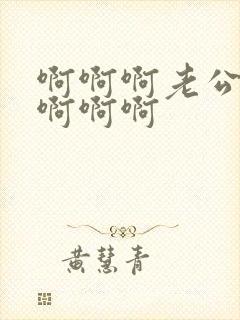 啊啊啊老公
啊啊啊
黄慧青